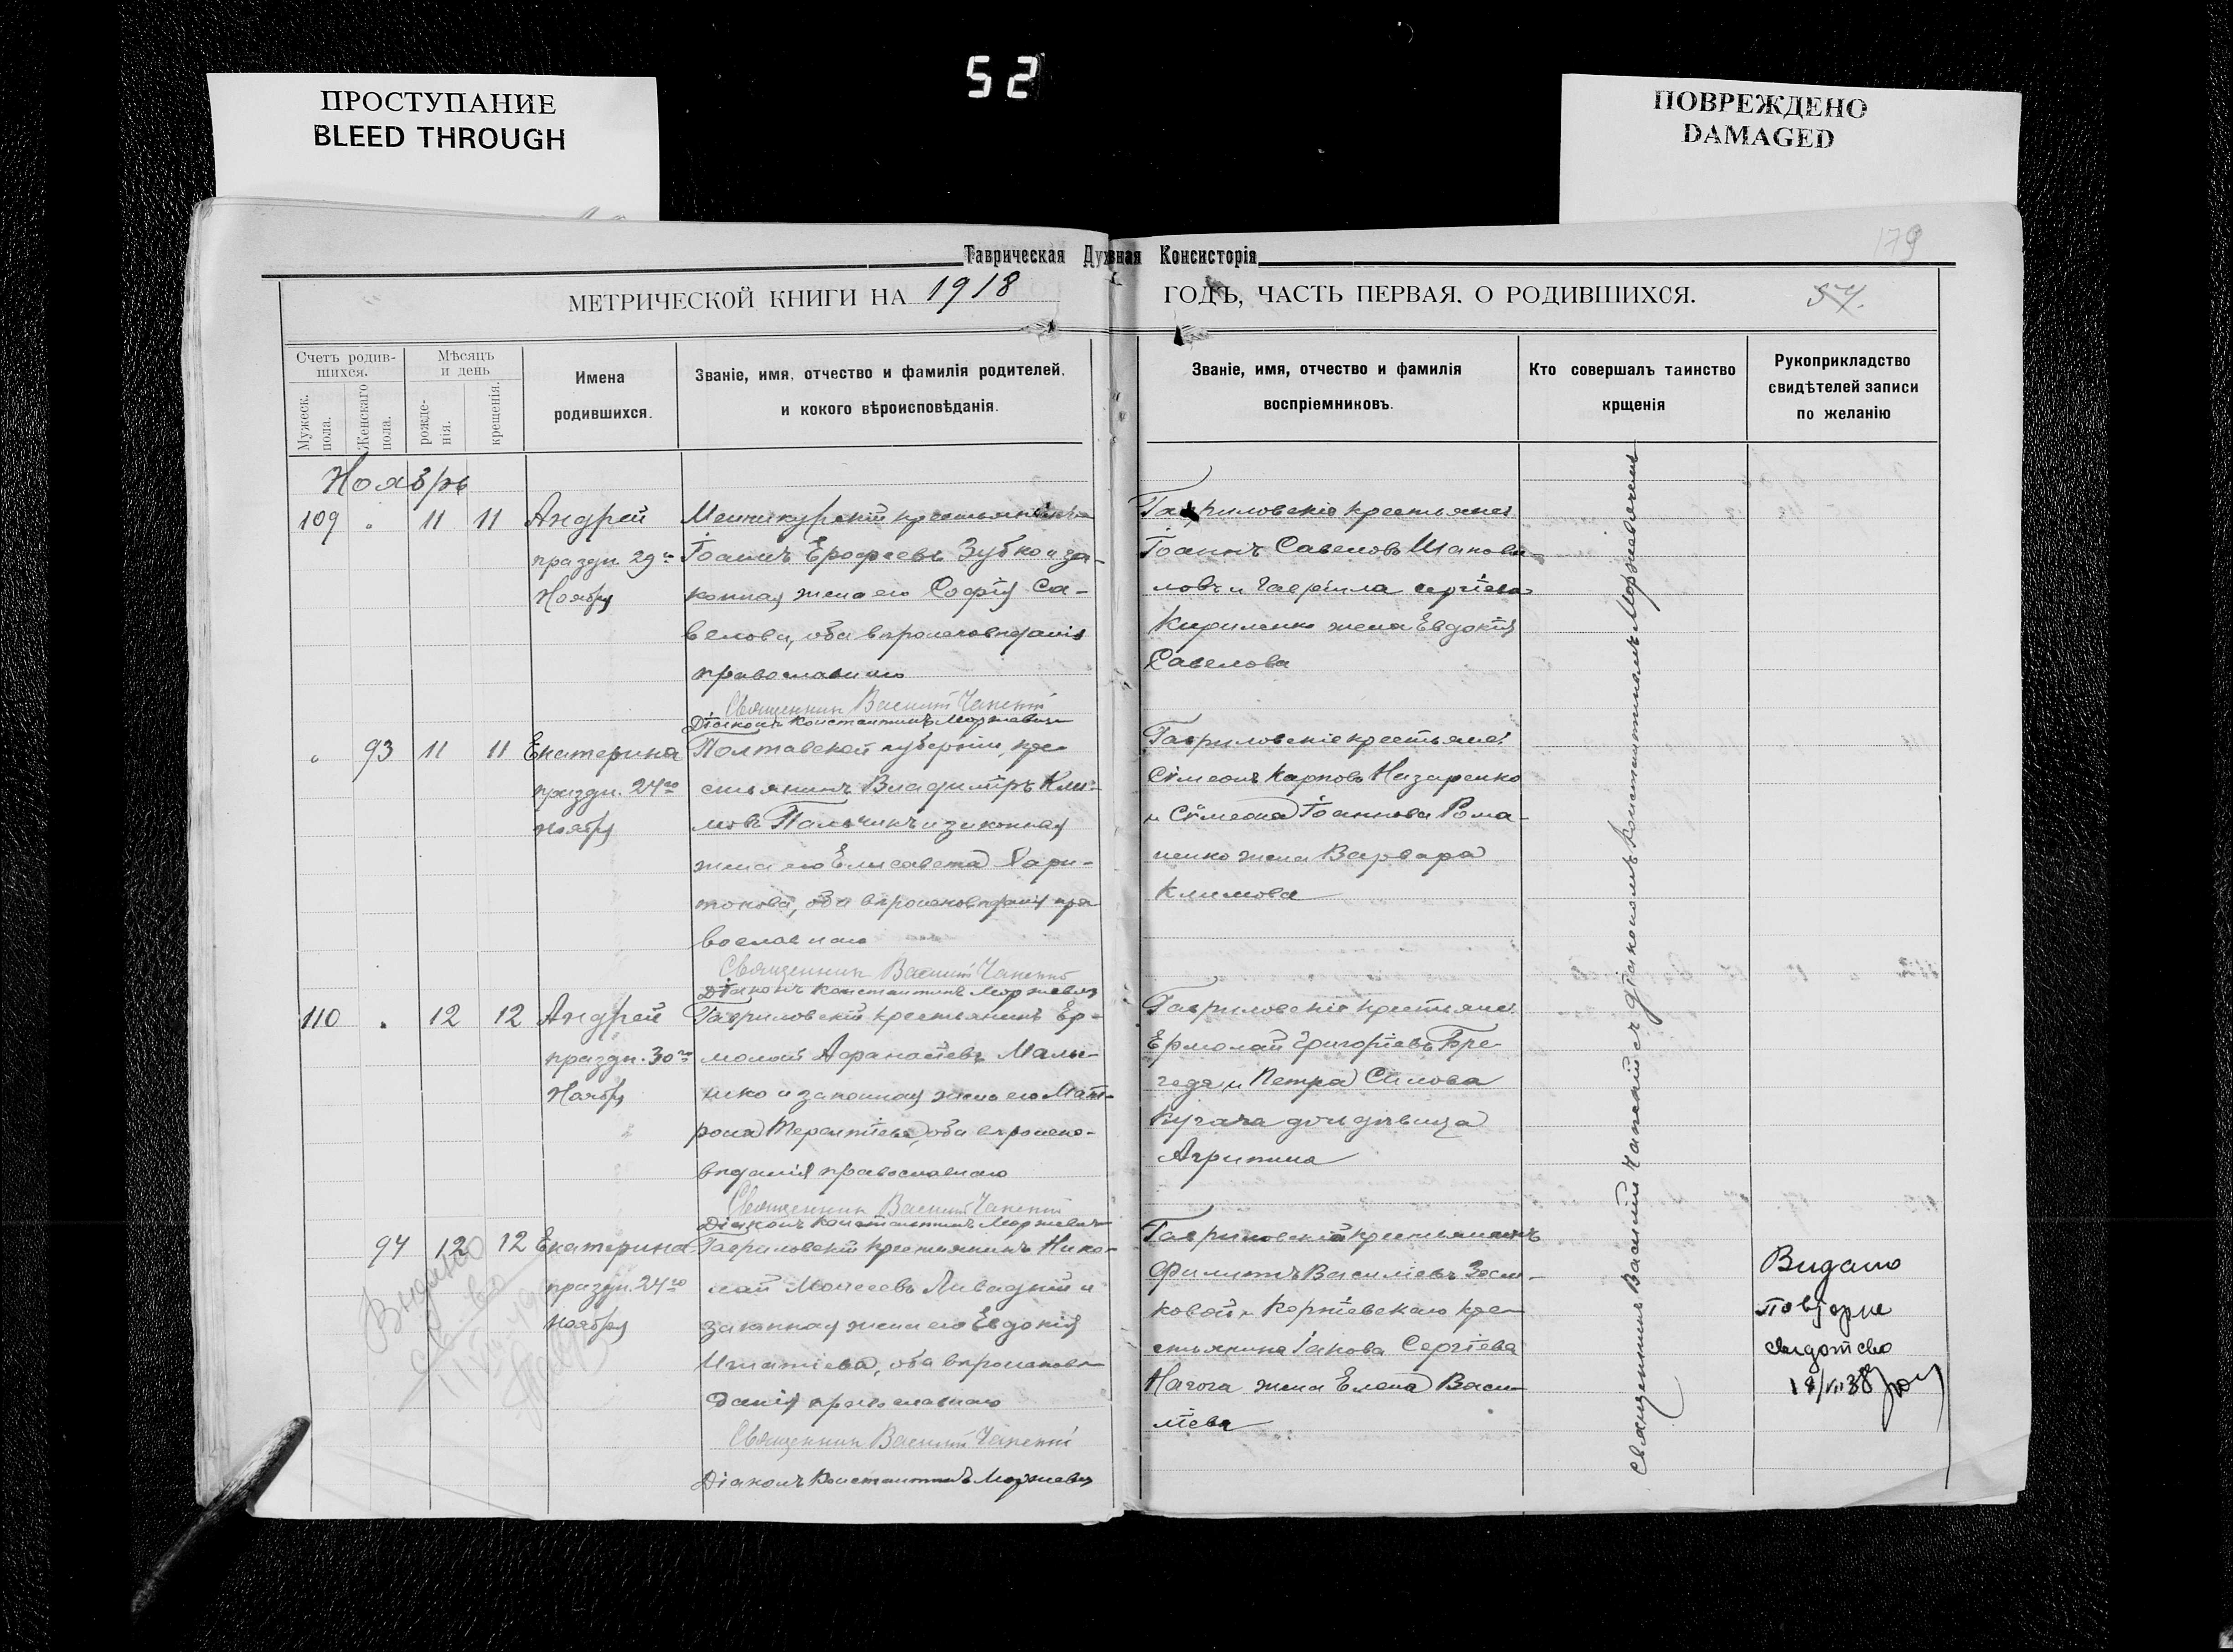 52
ПРОСТУПАНИЕ
BLEED THROUGH
ПОВРЕЖДЕНО
DAMAGED
179
Таврическая Духовная Консисторія
МЕТРИЧЕСКОЙ КНИГИ НА 1918
ГОДЪ, ЧАСТЬ ПЕРВАЯ. О РОДИВШИХСЯ.
57.
Счетъ родив-
шихся.
Мужеск. пола.
Женскаго пола.
Мѣсяцъ
и день
рожде-
нія.
крещенія.
Имена
родившихся.
Званіе, имя, отчество и фамилія родителей.
и кокого вѣроисповѣданія.
Званіе, имя, отчество и фамилія
воспріемниковъ.
Кто совершалъ таинство
крщенія
Рукоприкладство
свидѣтелей записи
по желанію
Ноябрь
109 " 11 11 Андрей
праздн. 29го
Ноября
крестьянинъ
Іоаннъ Ерофеевъ Зубко и за-
конная жена его Софія Са-
велова, оба вѣроисповѣданія
православнаго
Священникъ Василій
Діаконъ Константинъ Моржевичъ
Гавриловскіе крестьяне:
Іоаннъ Савеловъ Шапова-
ловъ и Гавріила Сергіева
Кириленко жена Евдокія
Савелова
" 93 11 11 Екатерина
праздн. 24го
ноября
Полтавской губерніи, кре-
стьянинъ Владиміръ Кли-
мовъ Пальчикъ и законная
жена его Елисавета Хари-
тонова, оба вѣроисповѣданія пра-
вославнаго
Священникъ Василій
Діаконъ Константинъ Моржевичъ
Гавриловскіе крестьяне:
Сѵмеонъ Карповъ Назаренко
и Сѵмеона Іоаннова Рома-
ненко жена Варвара
Климова
110 " 12 12 Андрей
праздн. 30го
Ноября
Гавриловскій крестьянинъ Ер-
молай Афанасіевъ Малы-
шко и законная жена его Мат-
рона Терентіева, оба вѣроиспо-
вѣданія православнаго
Священникъ Василій
Діаконъ Константинъ Моржевичъ
Гавриловскіе крестьяне:
Ермолай Григоріевъ
и Петра Силова
дочь дѣвица
Агрипина
94 12 12 Екатерина
праздн. 24го
ноября
Гавриловскій крестьянинъ Нико-
лай Моисеевъ Ливадній и
законная жена его Евдокія
Игнатіева, оба вѣроисповѣ-
данія православнаго
Священникъ Василій
Діаконъ Константинъ Моржевичъ
Гавриловскій крестьянинъ
Филиппъ Василіевъ
кре-
стьянина Іакова Сергіева
Нагога жена Елена Васи-
ліева
Выдано
Священникъ Василій съ діакономъ Константиномъ Моржевичемъ
Видано
повторне
свидотство